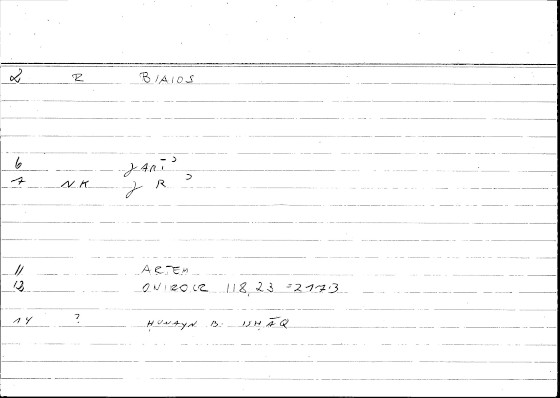 2 R BIAIOS
6 ǧARĪʾ
7 NK ǧ R ʾ
11 ARTEM
12 ONIROCR 118,23 = 217,3
14 ? ḤUNAYN B. ISḤĀQ